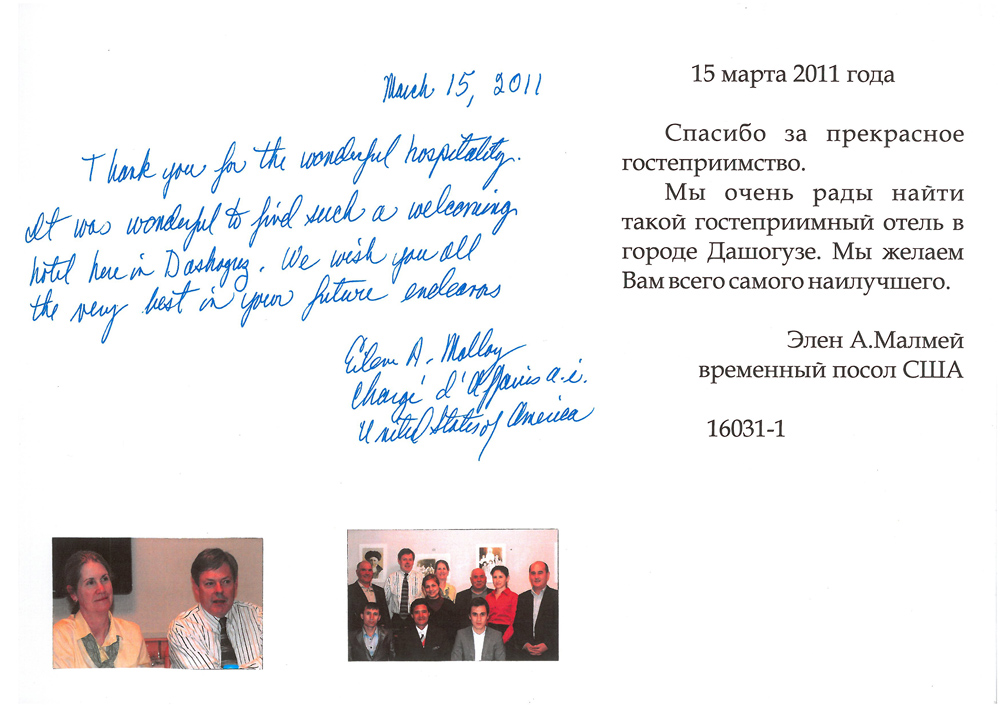 March 15, 2011
Thank you for the wonderful hospitality.
It was wonderful to find such a welcoming
hotel here in Dashoguz. We wish you all
the very best in your future endeavors
Eileen A. Malloy
Chargé d'Affaires a.i.
United States of America
15 марта 2011 года
Спасибо за прекрасное
гостеприимство.
Мы очень рады найти
такой гостеприимный отель в
городе Дашогузе. Мы желаем
Вам всего самого наилучшего.
Элен А.Малмей
временный посол США
16031-1